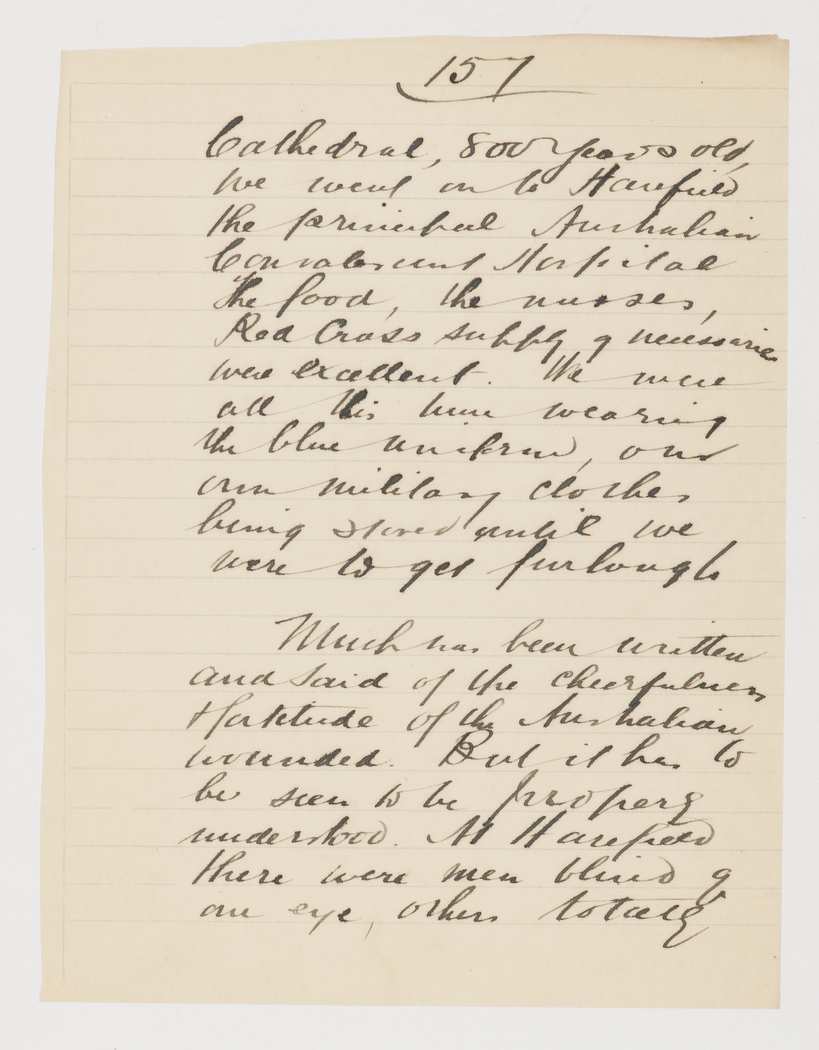 157
Cathedral, 800 years old,
we went on to Harefield
the principal Australian
Convalescent Hospital
The food, the nurses,
Red Cross supply of necessaries
were excellent. We were
all this time wearing
the blue uniform, our
own military clothes
being stored until we
were to get furlough
Much has been written
and said of the cheerfulness
& fortitude of the Australian
wounded. But it has to
be seen to be properly
understood. At Harefield
there were men blind of
one eye, others totally